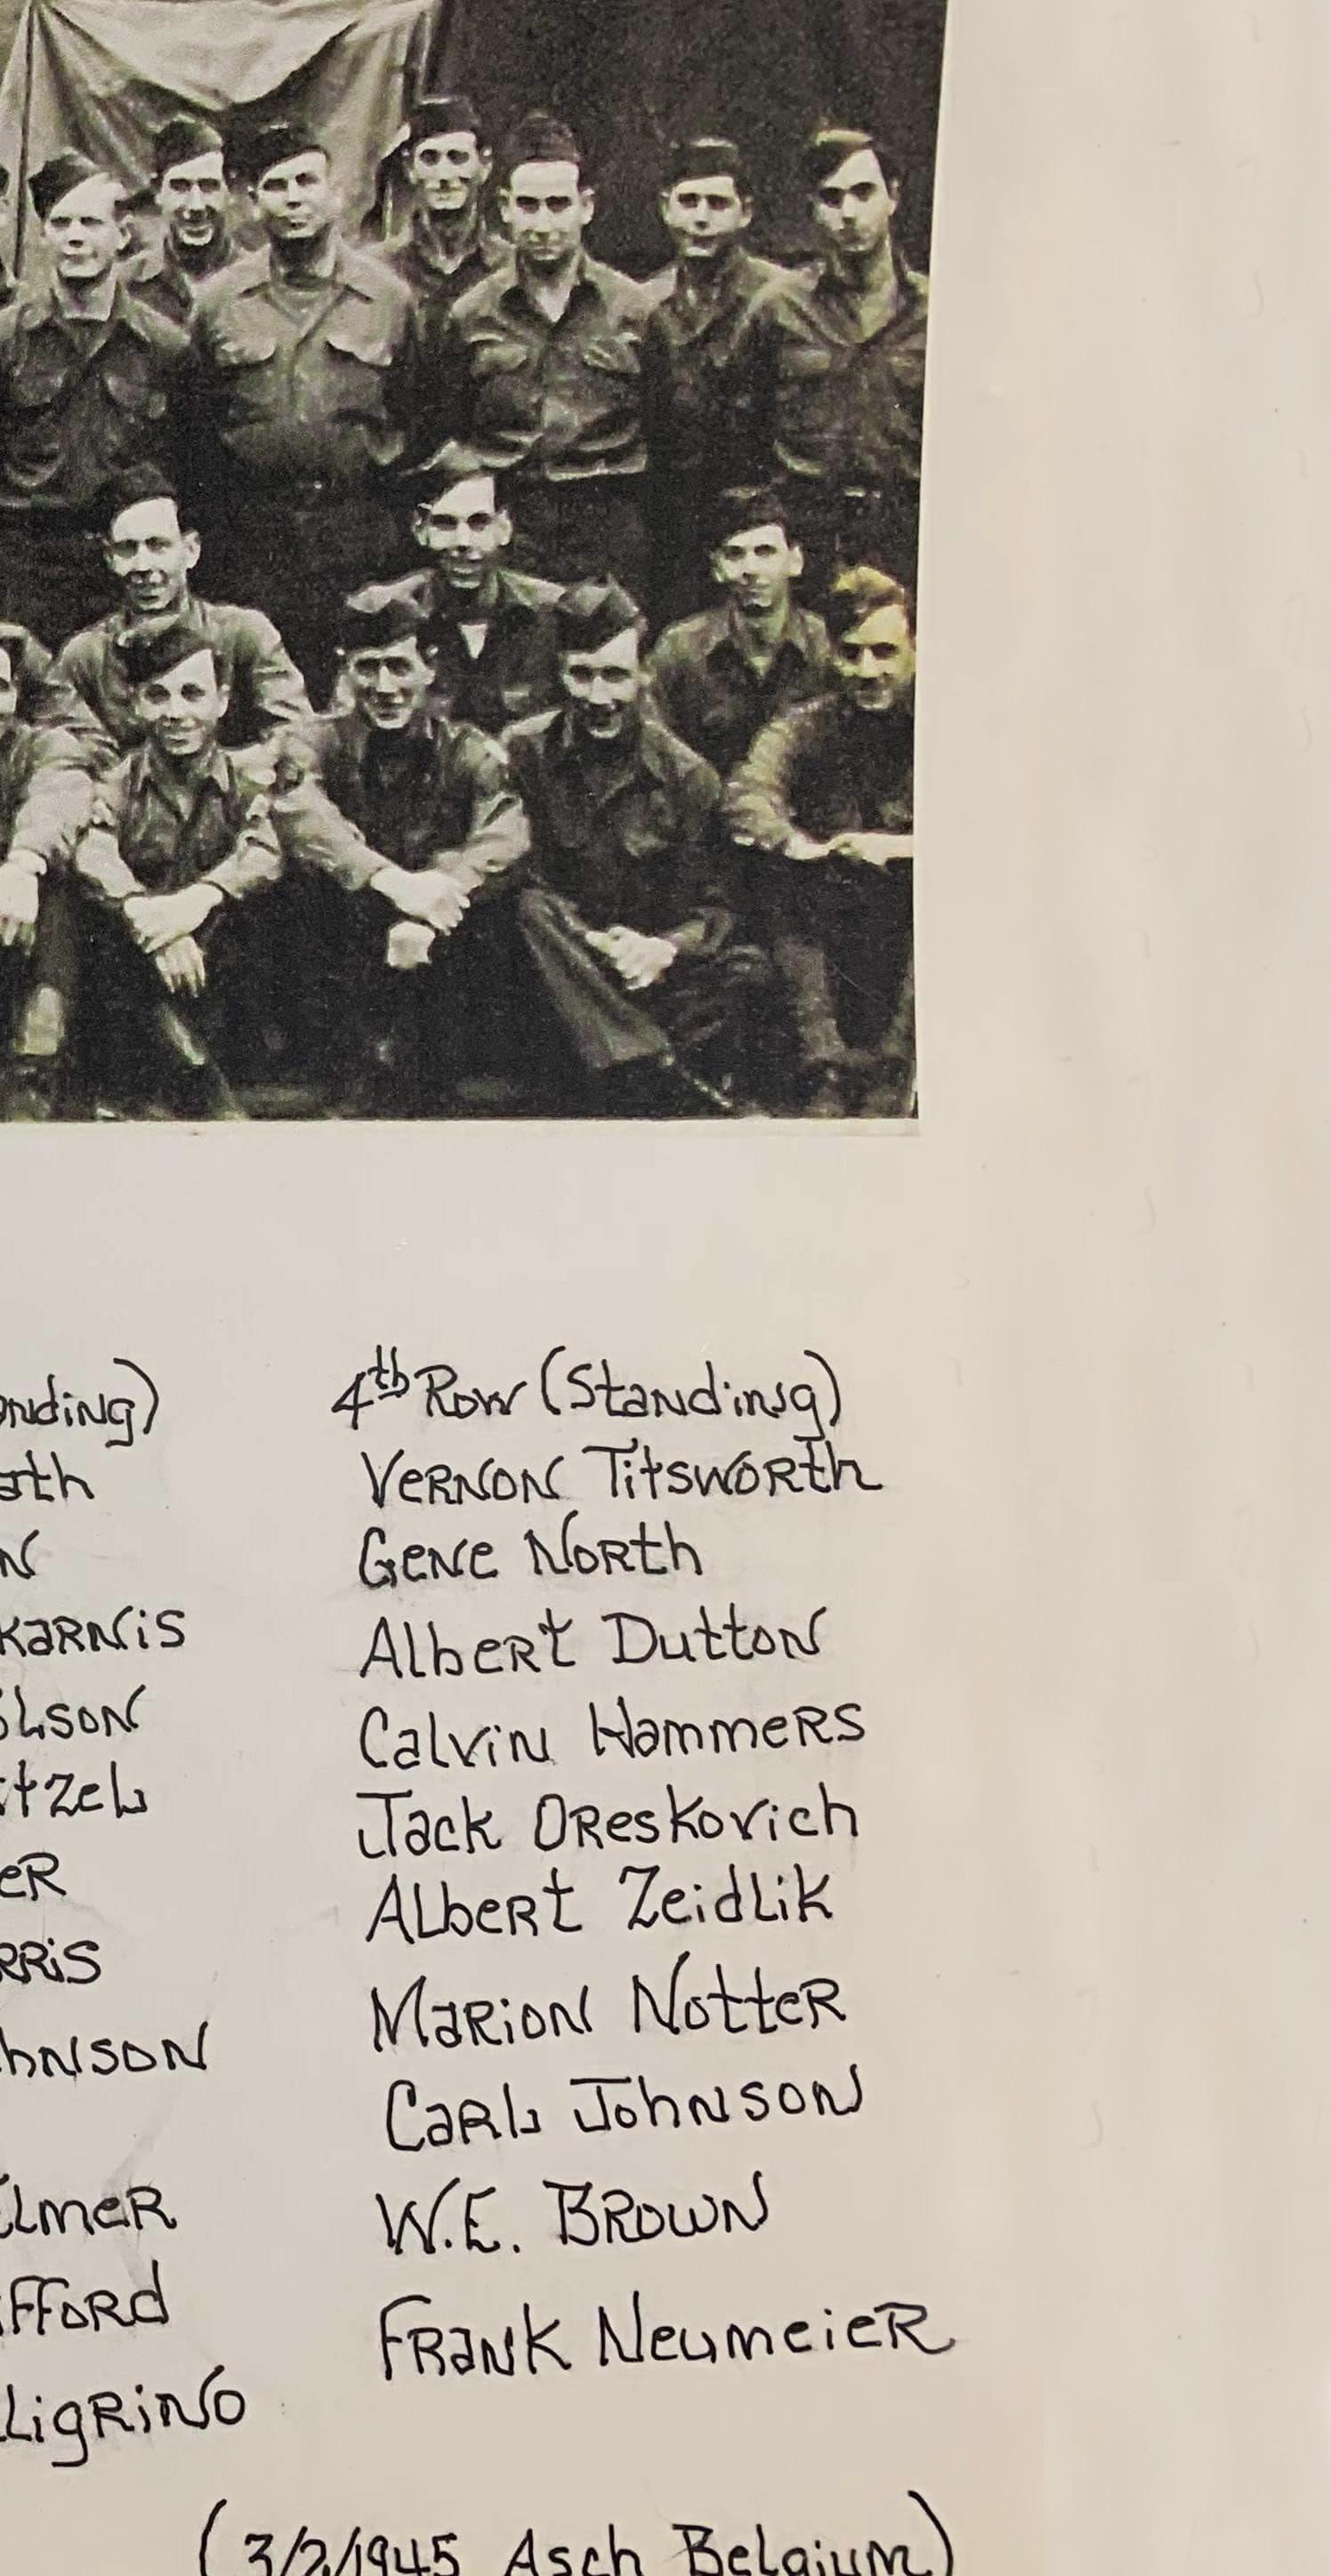 nding)
ath
N
KARNis
LSON
tzel
eR
RRis
hNSON
LmeR
ffORd
LigRiNo
4th Row (Standing)
VeRNON TitswoRth
GeNe NoRth
AlbeRt DuttoN
Calvin HammeRS
Jack OReskovich
ALbeRt Zeidlik
MaRioN NotteR
CaRL JohNSON
W.E. BROWN
FRaNK NeumeieR
(3/2/1945 Asch Belgium)